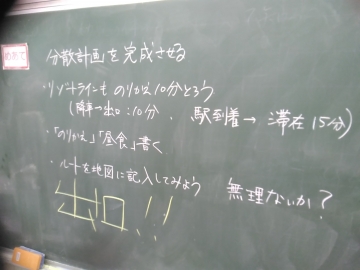 めあて
分散計画を完成させる
・リゾートラインも のりかえ10分とろう
(降車→出口:10分、駅到着→滞在15分)
・「のりかえ」「昼食」書く
・ルートを地図に記入してみよう
無理ないか?
出口!!